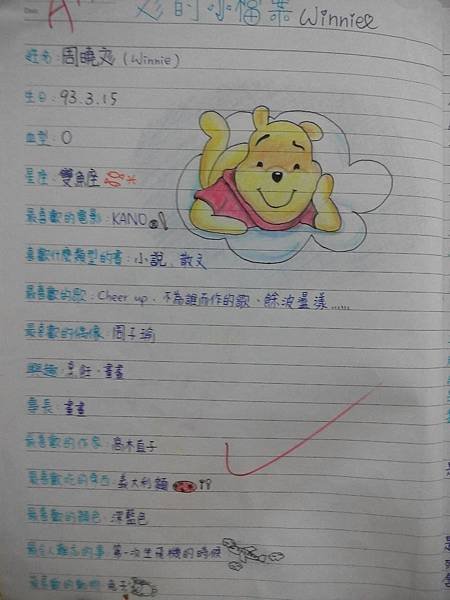 A+
的小檔案 Winniee
姓名:周曉彣(Winnie)
生日:93.3.15
血型:O
星座:雙魚座
最喜歡的電影:KANO
喜歡什麼類型的書:小說、散文
最喜歡的歌:Cheer up、不為誰而作的歌、餘波盪漾......
最喜歡的偶像:周子瑜
興趣:烹飪、畫畫
專長:畫畫
最喜歡的作家:高木直子
最喜歡吃的食物:義大利麵
最喜歡的顏色:深藍色
最令人難忘的事:第一次坐飛機的時候
最喜歡的動物:兔子